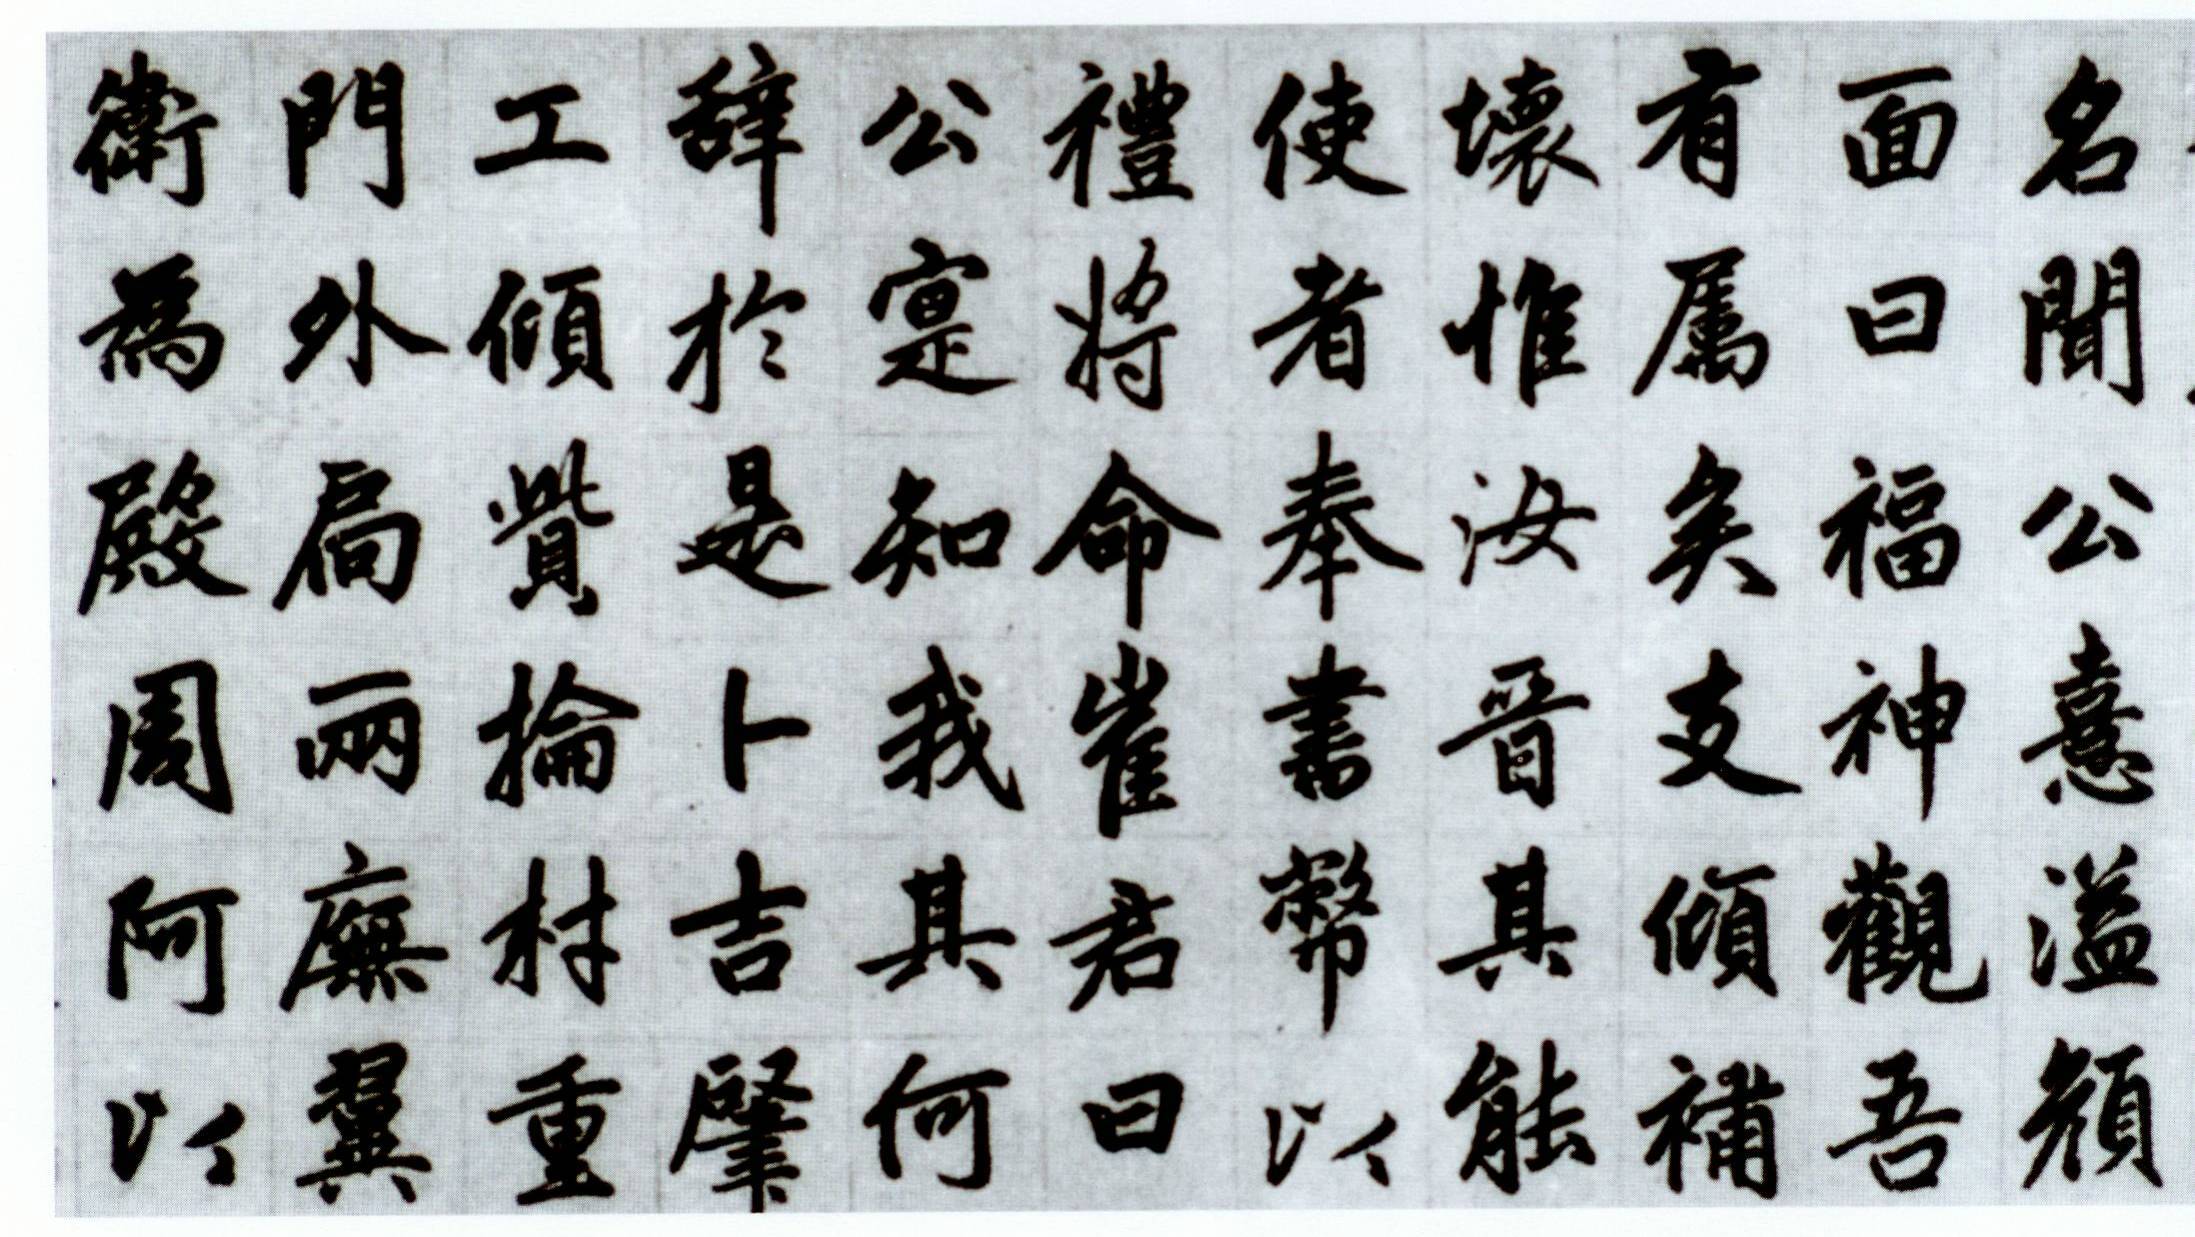 名聞公憙溢顏
面曰福神觀吾
有屬矣支傾補
壞惟汝晉其能
使者奉書幣以
禮將命崔君曰
公寔知我其何
辭於是卜吉肇
工傾貲掄材重
門外扃兩廡翼
衛為殿周阿以